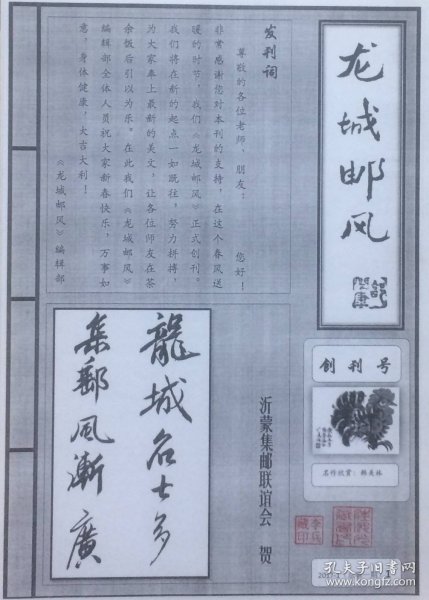 龙城邮风
创刊号
名作欣赏：韩美林
发刊词
尊敬的各位老师、朋友：
您好！
非常感谢您对本刊的支持，在这个春风送
暖的时节，我们《龙城邮风》正式创刊。
我们将在新的起点一如既往，努力拼搏，
为大家奉上最新的美文，让各位师友在茶
余饭后引以为乐。在此我们《龙城邮风》
编辑部全体人员祝大家新春快乐，万事如
意，身体健康，大吉大利！
《龙城邮风》编辑部
沂蒙集邮联谊会 贺
龍城名士多
集郵風漸廣
孔夫子旧书网
www.kongfz.com